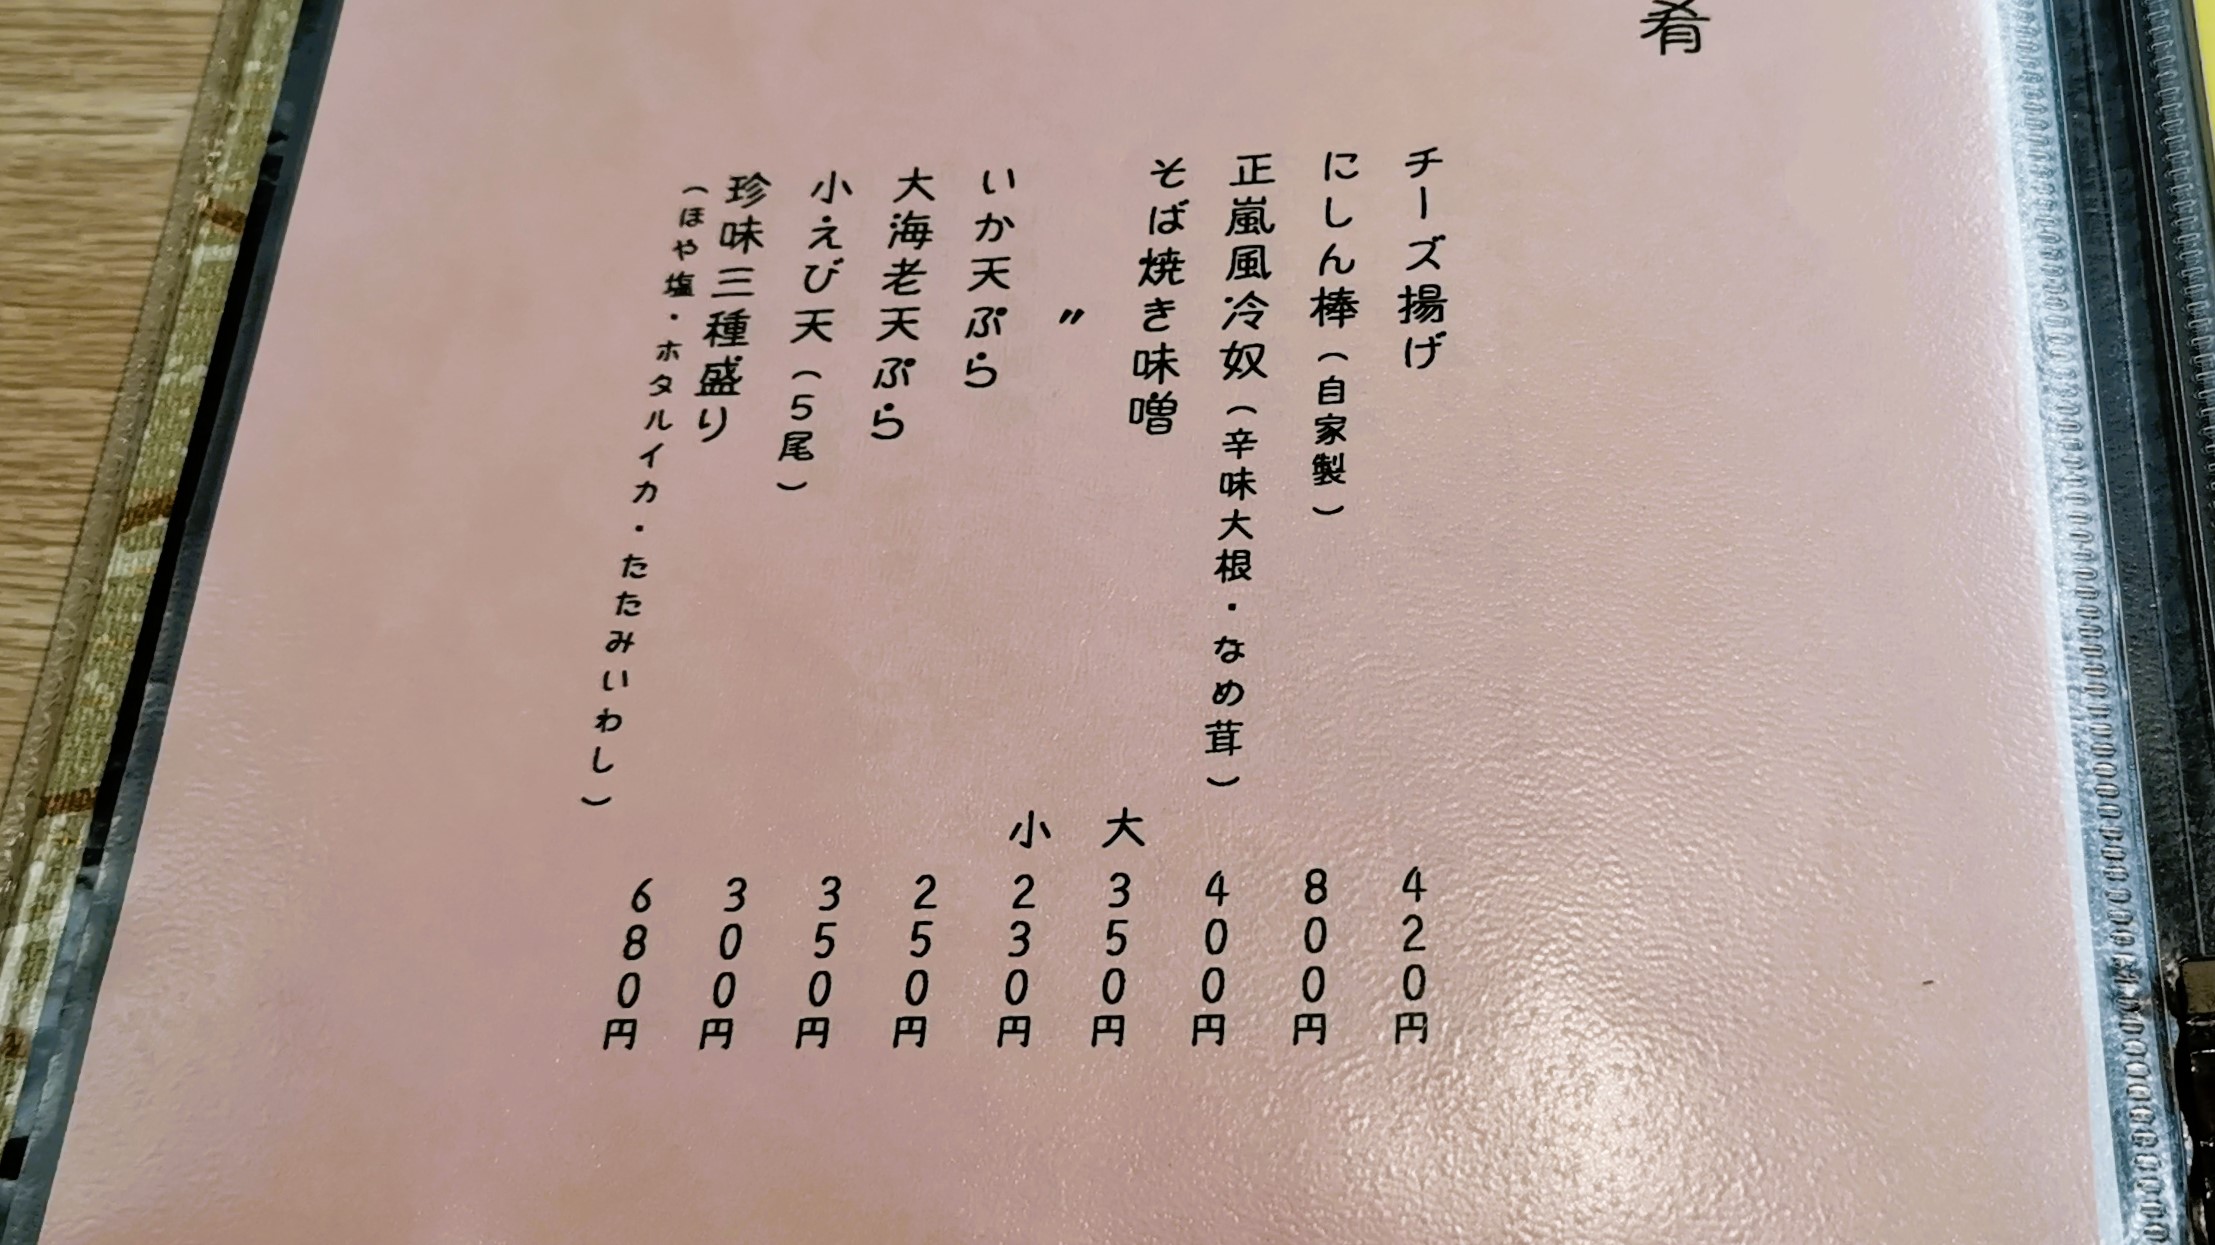 肴
チーズ揚げ 420円
にしん棒(自家製) 800円
正嵐風冷奴(辛味大根・なめ茸) 400円
そば焼き味噌 大 350円
〃 小 230円
いか天ぷら 250円
大海老天ぷら 350円
小えび天(5尾) 300円
珍味三種盛り 680円
(ほや塩・ホタルイカ・たたみいわし)